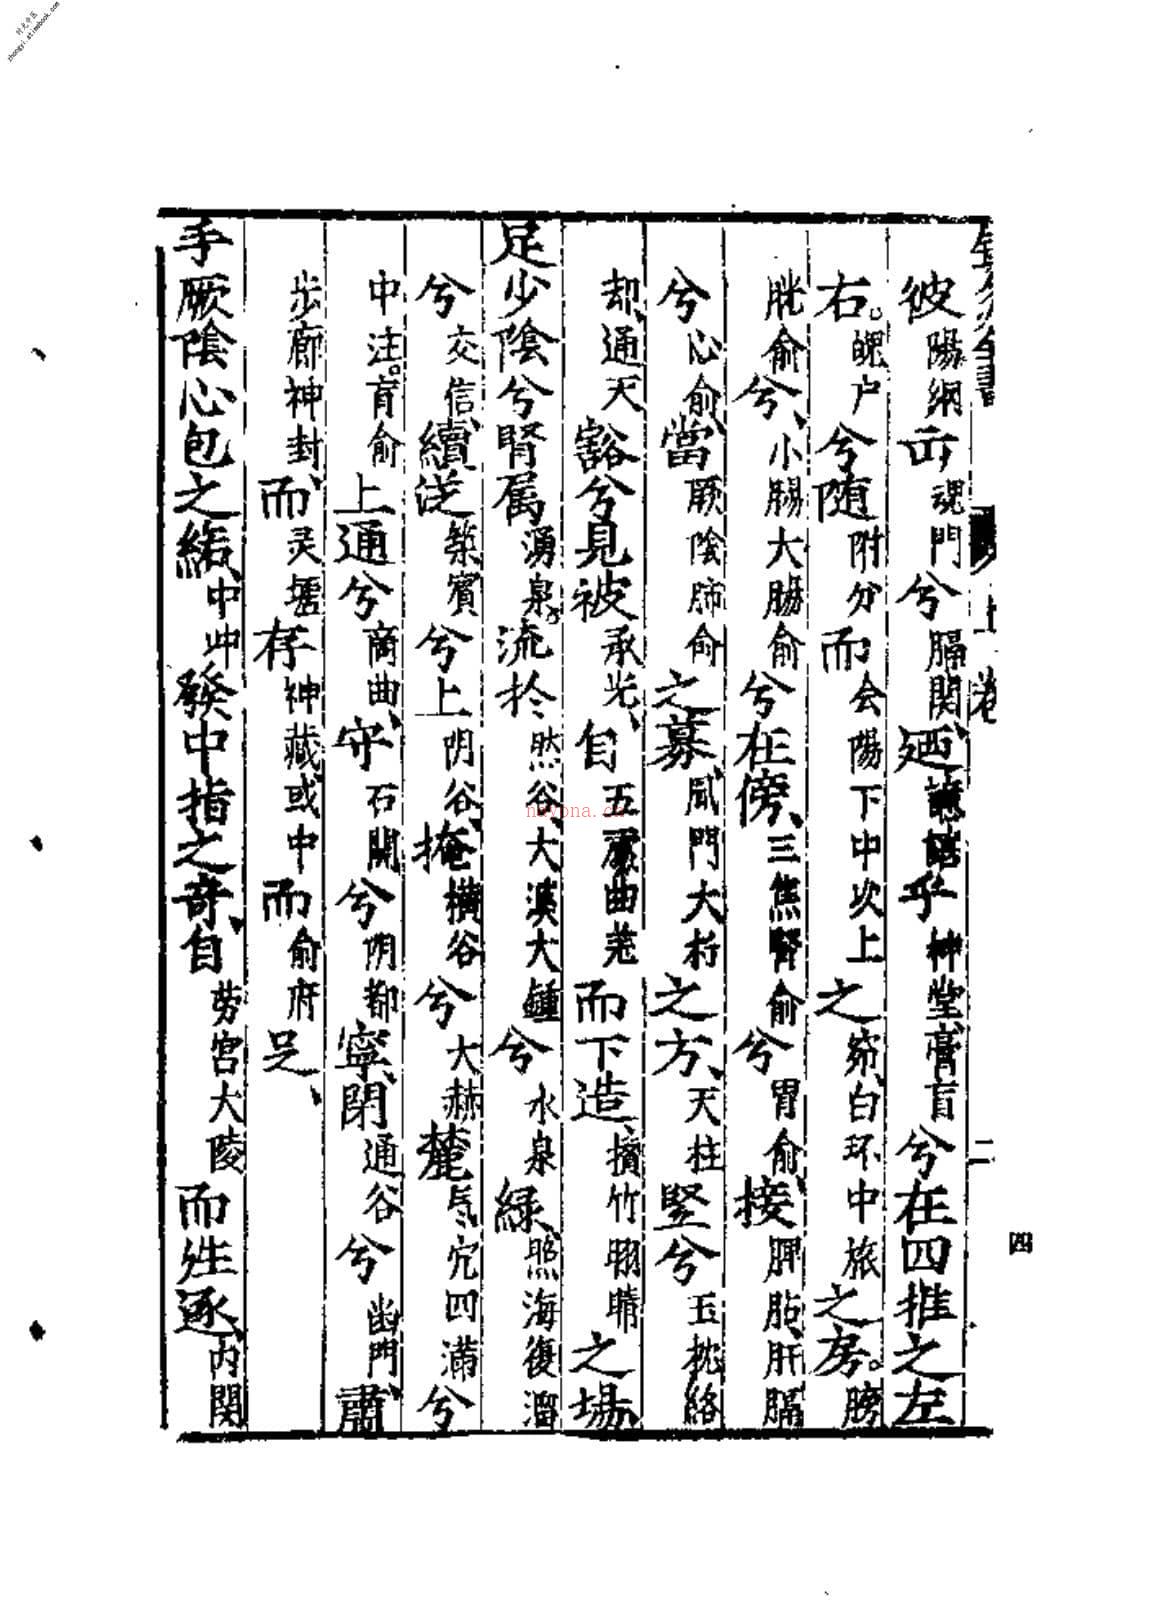 彼陽綱丘魂門兮膈関廼譩譆乎神堂膏盲兮在四椎之左
右。魄户兮随附分而会陽下中次上之窌白环中旅之房。膀
胱俞兮、小腸大腸俞兮在傍、三焦腎俞兮胃俞接脾胎、肝膈
兮心俞當厥陰肺俞之募、風門大杼之方、天柱竪兮玉枕絡
却、通天豁兮見被承光、自五處曲差而下造、攅竹明睛之場、
足少陰兮腎属湧泉。流扵然谷、大溪大鍾兮水泉緑、照海復溜
兮交信續従築賓兮上阴谷、掩横谷兮大赫麓气穴四滿兮
中注。肓俞上通兮商曲、守石関兮阴都寧、閉通谷兮幽門、肅
步廊神封、而灵墟存神藏或中而俞府足、
手厥陰心包之絡、中冲發中指之奇、自劳宫大陵而徃逐、内関
上卷
二
四
时光中医
zhongyi.atimebook.com
nayona.cn